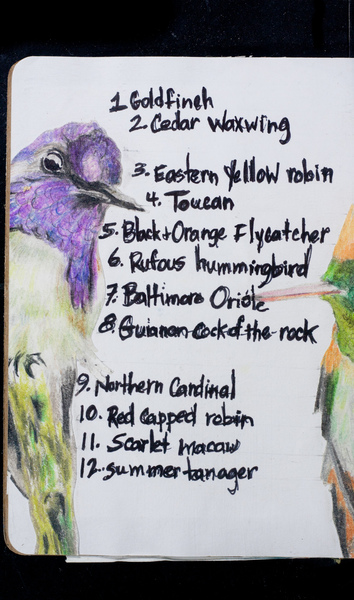 1 Goldfinch
2. Cedar Waxwing
3. Eastern Yellow robin
4. Toucan
5. Black+Orange Flycatcher
6. Rufous hummingbird
7. Baltimore Oriole
8. Guianan-Cock-of-the-rock
9. Northern Cardinal
10. Red capped robin
11. Scarlet macaw
12. summer tanager